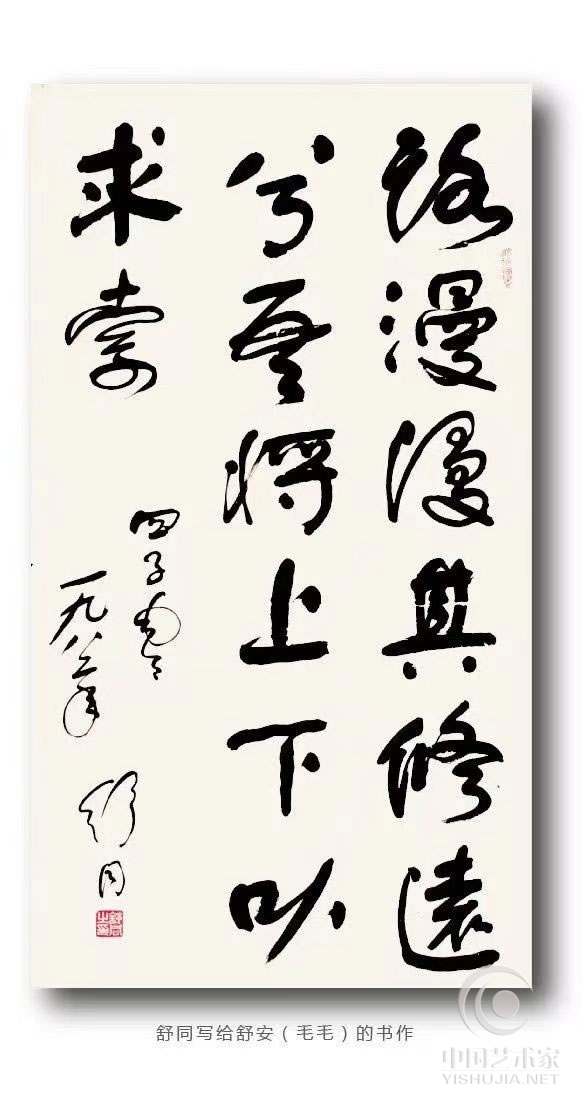 路漫漫其修遠
兮吾将上下而
求索
四子毛毛
一九八年
舒同
舒同之印
舒同写给舒安（毛毛）的书作
中国艺术家
YISHUJIA.NET